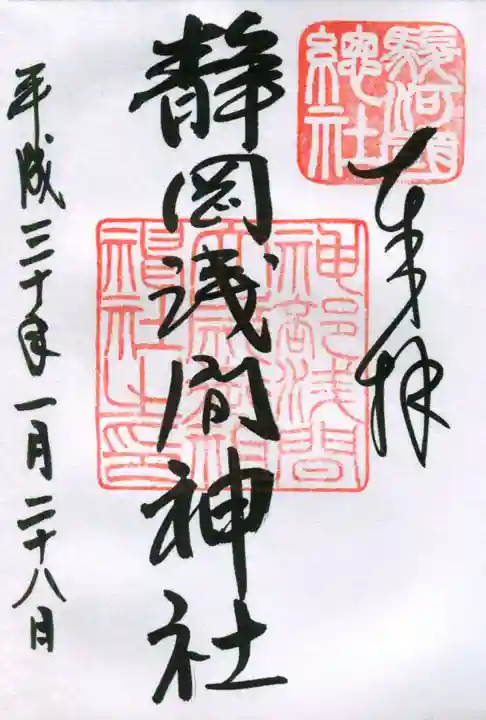 駿河國
總社
奉拝
静岡浅間神社
神部浅間
大歳御祖
神社之印
平成三十年一月二十八日